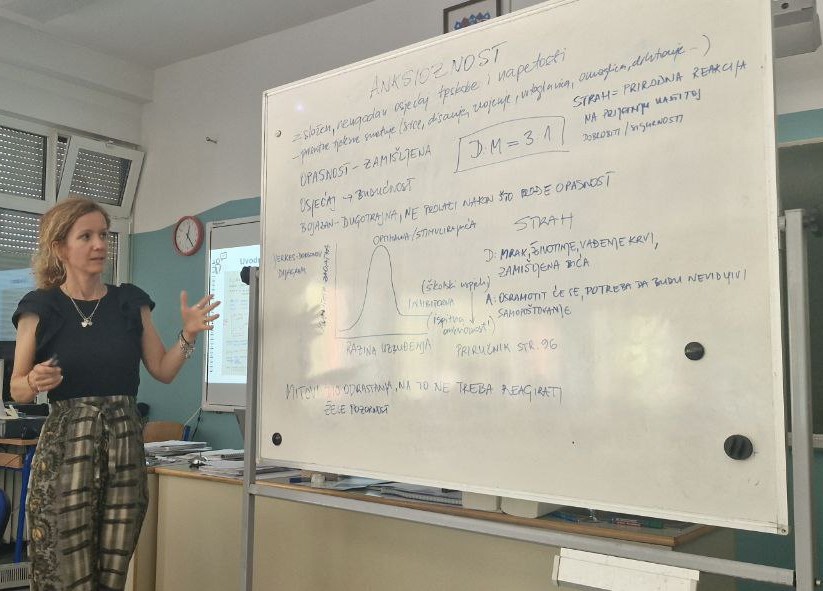 ANKSIOZNOST
= složen, neugodan osjećaj tjeskobe i napetosti
- prisutne tjelesne smetnje (srce, disanje, znojenje, vrtoglavica, omaglica, drhtanje...)
STRAH = PRIRODNA REAKCIJA
NA PRIJETNJU VLASTITOJ
DOBROBITI / SIGURNOSTI
D:M = 3:1
OPASNOST - ZAMIŠLJENA
OSJEĆAJ → BUDUĆNOST
BOJAZAN - DUGOTRAJNA, NE PROLAZI NAKON ŠTO PROĐE OPASNOST
STRAH
D: MRAK, ŽIVOTINJE, VAĐENJE KRVI,
ZAMIŠLJENA BIĆA
A: OSRAMOTIT ĆE SE, POTREBA DA BUDU NEVIDLJIVI
SAMOPOŠTOVANJE
YERKES-DODSONOV
DIJAGRAM
OPTIMALNA / STIMULIRAJUĆA
(školski uspjeh)
INHIBITORNA
(ispitna
anksioznost)
RAZINA UZBUĐENJA
PRIRUČNIK STR. 96
MITOVI: DIO ODRASTANJA, NA TO NE TREBA REAGIRATI
ŽELE POZORNOST
Uvod